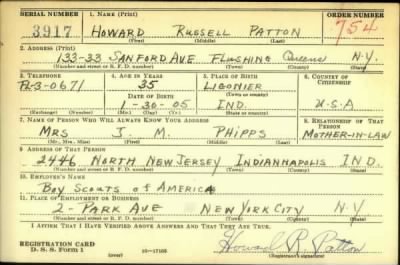 SERIAL NUMBER 1. NAME (Print) ORDER NUMBER
3917 HOWARD RUSSELL PATTON 754
(First) (Middle) (Last)
2. ADDRESS (Print)
133-33 SANFORD AVE FLUSHING Queens N.Y.
(Number and street or R. F. D. number) (Town) (County) (State)
3. TELEPHONE 4. AGE IN YEARS 5. PLACE OF BIRTH 6. COUNTRY OF CITIZENSHIP
FL-3-0671 35 LIGONIER
DATE OF BIRTH (Town or county)
1-30-05 IND. U.S.A
(Exchange) (Number) (Mo.) (Day) (Yr.) (State or country)
7. NAME OF PERSON WHO WILL ALWAYS KNOW YOUR ADDRESS 8. RELATIONSHIP OF THAT PERSON
MRS J. M. PHIPPS MOTHER-IN-LAW
(Mr., Mrs., Miss) (First) (Middle) (Last)
9. ADDRESS OF THAT PERSON
2446 NORTH NEW JERSEY INDIANNAPOLIS IND.
(Number and street or R. F. D. number) (Town) (County) (State)
10. EMPLOYER'S NAME
BOY SCOUTS OF AMERICA
11. PLACE OF EMPLOYMENT OR BUSINESS
2- PARK AVE NEW YORK CITY N.Y
(Number and street or R. F. D. number) (Town) (County) (State)
I AFFIRM THAT I HAVE VERIFIED ABOVE ANSWERS AND THAT THEY ARE TRUE.
REGISTRATION CARD
D. S. S. Form 1 16-17105 Howard R. Patton
(over) (Registrant's signature)